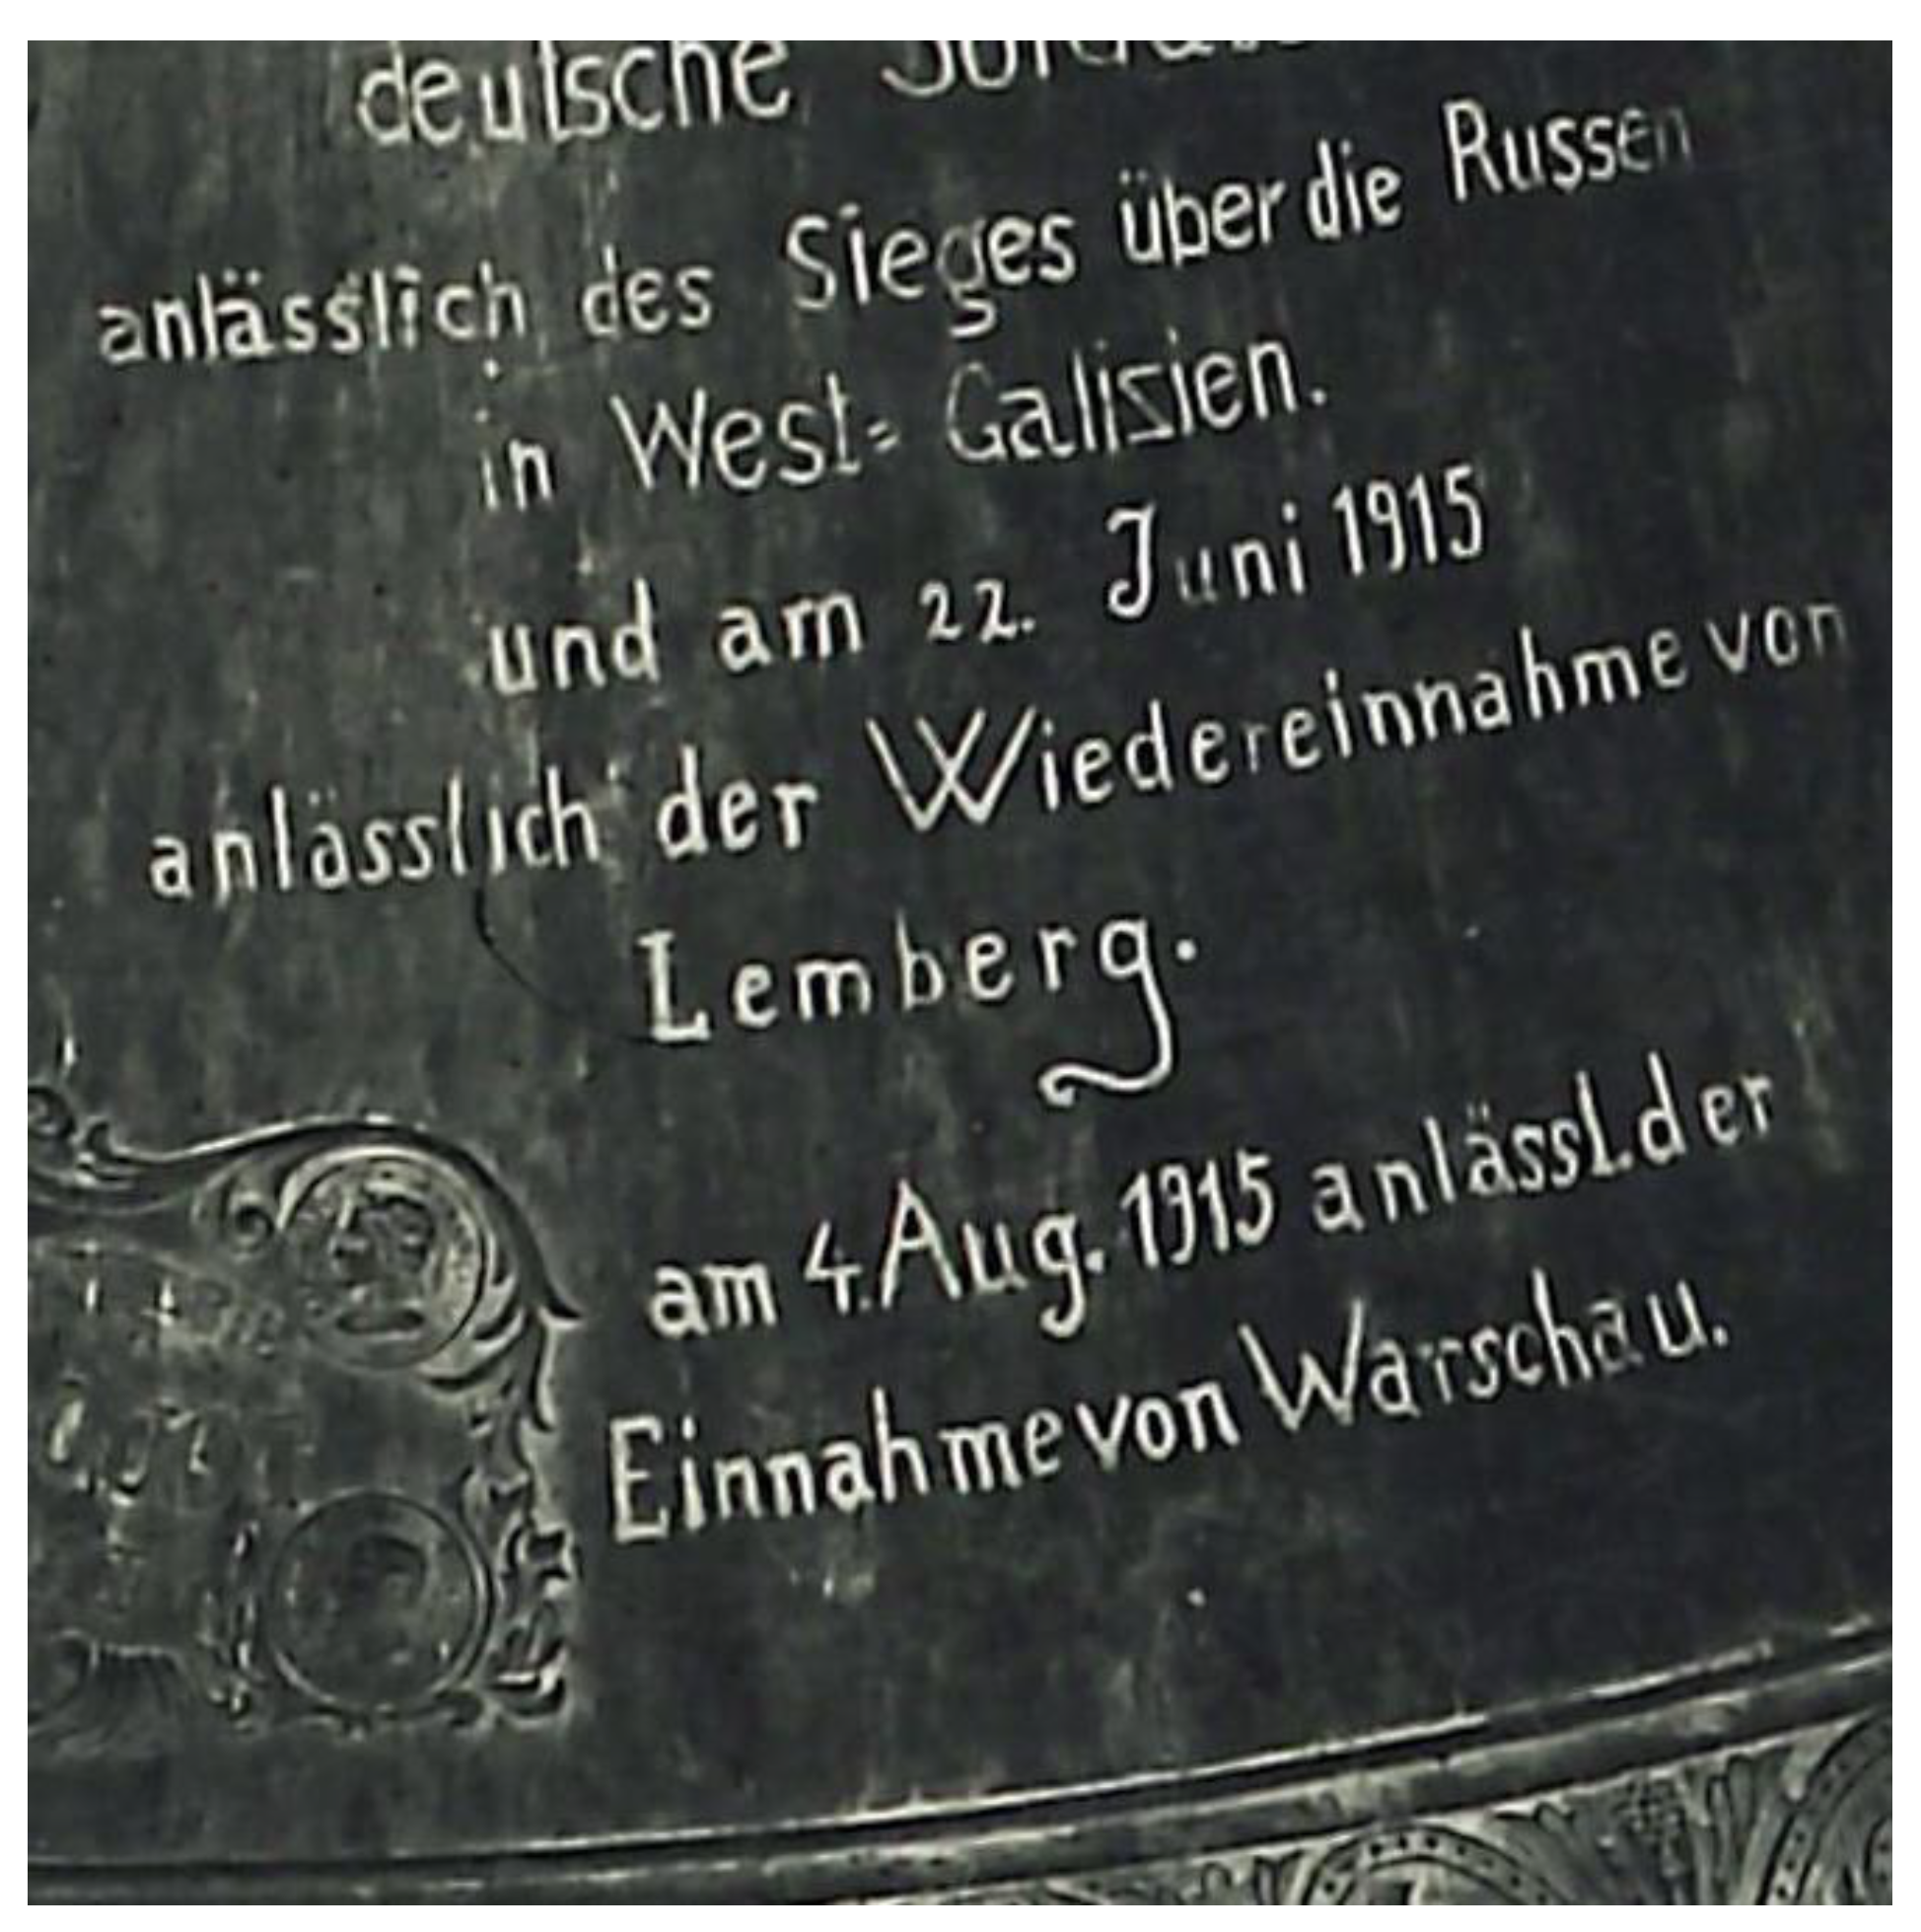 deutsche
anlässlich des Sieges über die Russen
in West= Galizien.
und am 22. Juni 1915
anlässlich der Wiedereinnahme von
Lemberg.
am 4. Aug. 1915 anlässl. der
Einnahme von Warschau.